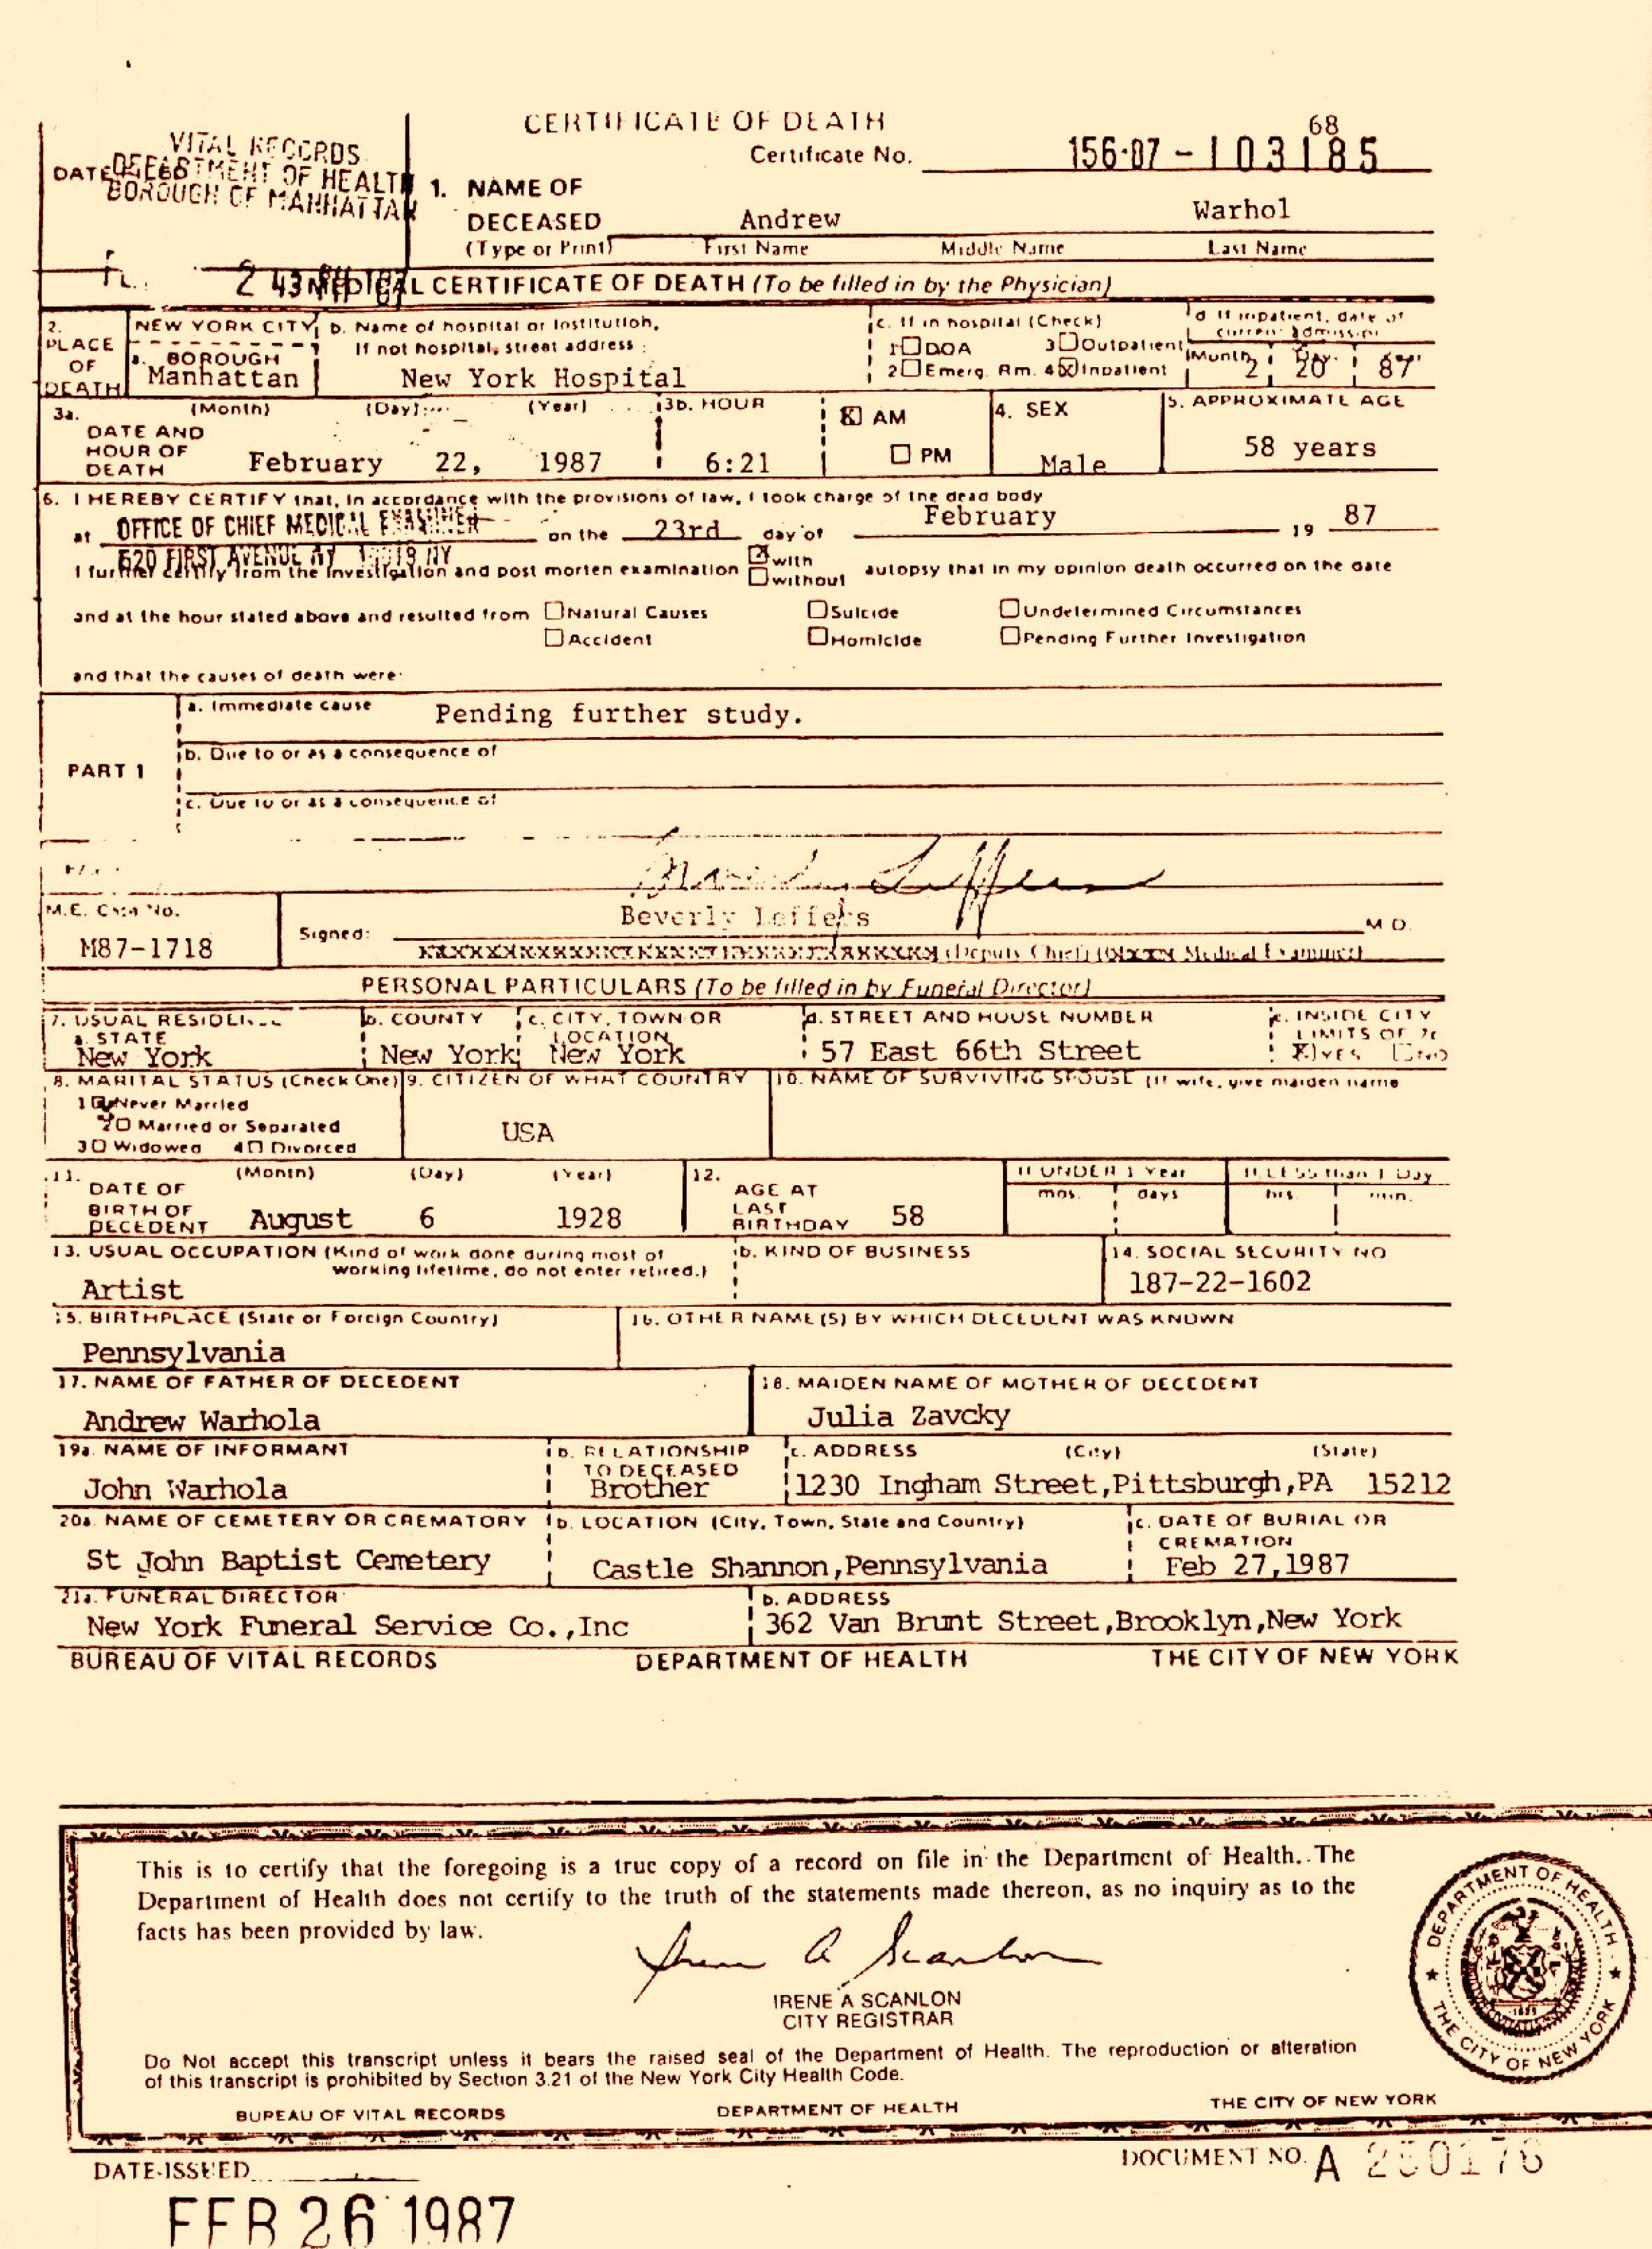 CERTIFICATE OF DEATH
VITAL RECORDS
DEPARTMENT OF HEALTH
BOROUGH OF MANHATTAN
DATE
Certificate No. 156-87-103185
68
1. NAME OF
DECEASED Andrew Warhol
(Type or Print) First Name Middle Name Last Name
2 43 PM
MEDICAL CERTIFICATE OF DEATH (To be filled in by the Physician)
2.
PLACE
OF
DEATH
NEW YORK CITY
a. BOROUGH
Manhattan
b. Name of hospital or Institution,
If not hospital, street address
New York Hospital
c. If in hospital (Check)
1 DOA 3 Outpatient
2 Emerg. Rm. 4 Inpatient
d If inpatient, date of
current admission
Month Day
2 20 87
3a. (Month) (Day) (Year)
DATE AND
HOUR OF
DEATH
February 22, 1987
3b. HOUR
6:21
AM
PM
4. SEX
Male
5. APPROXIMATE AGE
58 years
6. I HEREBY CERTIFY that, in accordance with the provisions of law, I took charge of the dead body
at OFFICE OF CHIEF MEDICAL EXAMINER on the 23rd day of February 19 87
520 FIRST AVENUE NY NY
I further certify from the investigation and post morten examination with without autopsy that in my opinion death occurred on the date
and at the hour stated above and resulted from Natural Causes Suicide Undetermined Circumstances
Accident Homicide Pending Further Investigation
and that the causes of death were:
PART 1
a. Immediate cause Pending further study.
b. Due to or as a consequence of
c. Due to or as a consequence of
M.E. Case No.
M87-1718
Signed:
Beverly Leffers M D.
(Deputy Chief) Medical Examiner)
PERSONAL PARTICULARS (To be filled in by Funeral Director)
7. USUAL RESIDENCE
a. STATE
New York
b. COUNTY
New York
c. CITY, TOWN OR
LOCATION
New York
d. STREET AND HOUSE NUMBER
57 East 66th Street
e. INSIDE CITY
LIMITS OF 7c
YES NO
8. MARITAL STATUS (Check One)
1 Never Married
2 Married or Separated
3 Widowed 4 Divorced
9. CITIZEN OF WHAT COUNTRY
USA
10. NAME OF SURVIVING SPOUSE (If wife, give maiden name
11. (Month) (Day) (Year)
DATE OF
BIRTH OF
DECEDENT
August 6 1928
12.
AGE AT
LAST
BIRTHDAY
58
If UNDER 1 Year
mos. days
If LESS than 1 Day
hrs. min.
13. USUAL OCCUPATION (Kind of work done during most of
working lifetime, do not enter retired.)
Artist
b. KIND OF BUSINESS
14. SOCIAL SECURITY NO
187-22-1602
15. BIRTHPLACE (State or Foreign Country)
Pennsylvania
16. OTHER NAME(S) BY WHICH DECEDENT WAS KNOWN
17. NAME OF FATHER OF DECEDENT
Andrew Warhola
18. MAIDEN NAME OF MOTHER OF DECEDENT
Julia Zavcky
19a. NAME OF INFORMANT
John Warhola
b. RELATIONSHIP
TO DECEASED
Brother
c. ADDRESS (City) (State)
1230 Ingham Street,Pittsburgh,PA 15212
20a. NAME OF CEMETERY OR CREMATORY
St John Baptist Cemetery
b. LOCATION (City, Town, State and Country)
Castle Shannon,Pennsylvania
c. DATE OF BURIAL OR
CREMATION
Feb 27,1987
21a. FUNERAL DIRECTOR
New York Funeral Service Co.,Inc
b. ADDRESS
362 Van Brunt Street,Brooklyn,New York
BUREAU OF VITAL RECORDS DEPARTMENT OF HEALTH THE CITY OF NEW YORK
This is to certify that the foregoing is a true copy of a record on file in the Department of Health. The
Department of Health does not certify to the truth of the statements made thereon, as no inquiry as to the
facts has been provided by law.
Irene A Scanlon
IRENE A SCANLON
CITY REGISTRAR
DEPARTMENT OF HEALTH
THE CITY OF NEW YORK
Do Not accept this transcript unless it bears the raised seal of the Department of Health. The reproduction or alteration
of this transcript is prohibited by Section 3.21 of the New York City Health Code.
BUREAU OF VITAL RECORDS DEPARTMENT OF HEALTH THE CITY OF NEW YORK
DATE ISSUED
FEB 26 1987
DOCUMENT NO. A 250176